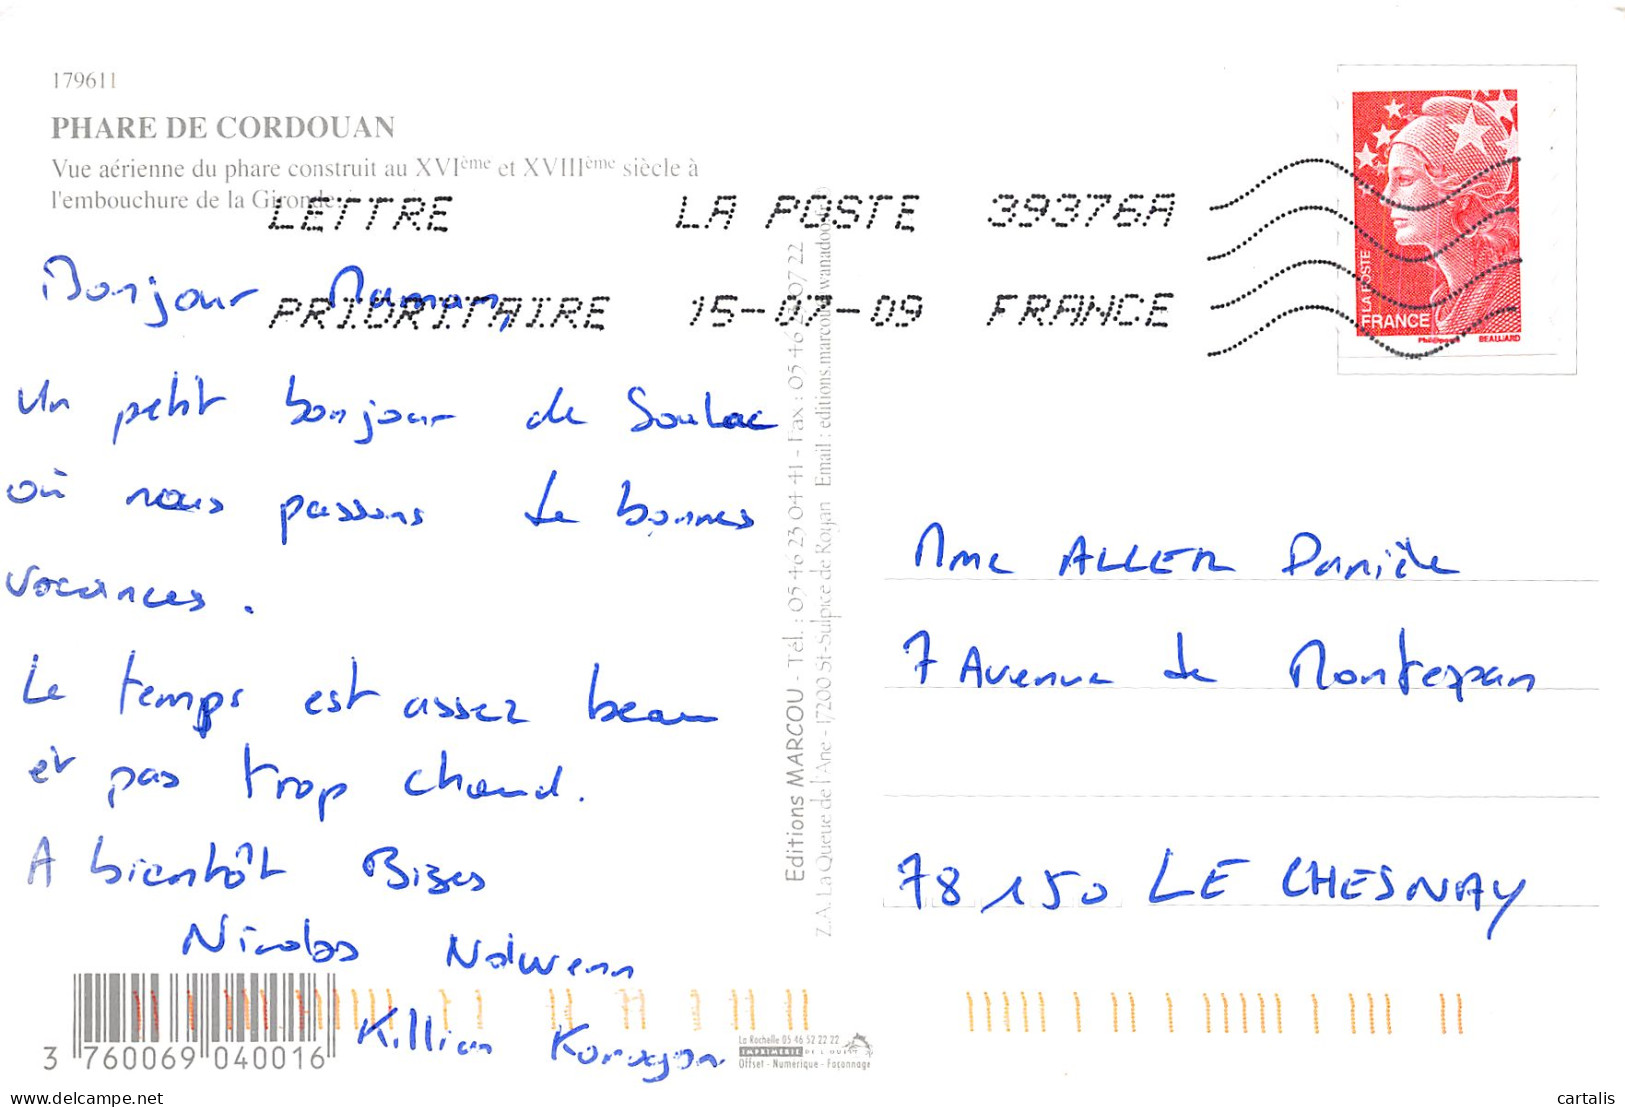 179611
PHARE DE CORDOUAN
Vue aérienne du phare construit au XVIème et XVIIIème siècle à
l'embouchure de la Gironde.
LETTRE LA POSTE 39376A
PRIORITAIRE 15-07-09 FRANCE
LA POSTE
FRANCE
Phil@poste BEAUJARD
Bonjour Maman,
Un petit bonjour de Soulac
où nous passons de bonnes
vacances.
Le temps est assez beau
et pas trop chaud.
A bientôt Bizes
Nicolas Nolwenn
Killian
Editions MARCOU - Tél. : 05 46 23 04 41 - Fax : 05 46 23 07 22
Z.A. La Queue de l'Ane - 17200 St-Sulpice de Royan Email : editions.marcou@wanadoo.fr
Mme ALLER Danièle
7 Avenue de Montespan
78150 LE CHESNAY
3 760069 040016
La Rochelle 05 46 52 22 22
IMPRIMERIE DE L'OUEST
Offset - Numérique - Façonnage
delcampe.net
cartalis